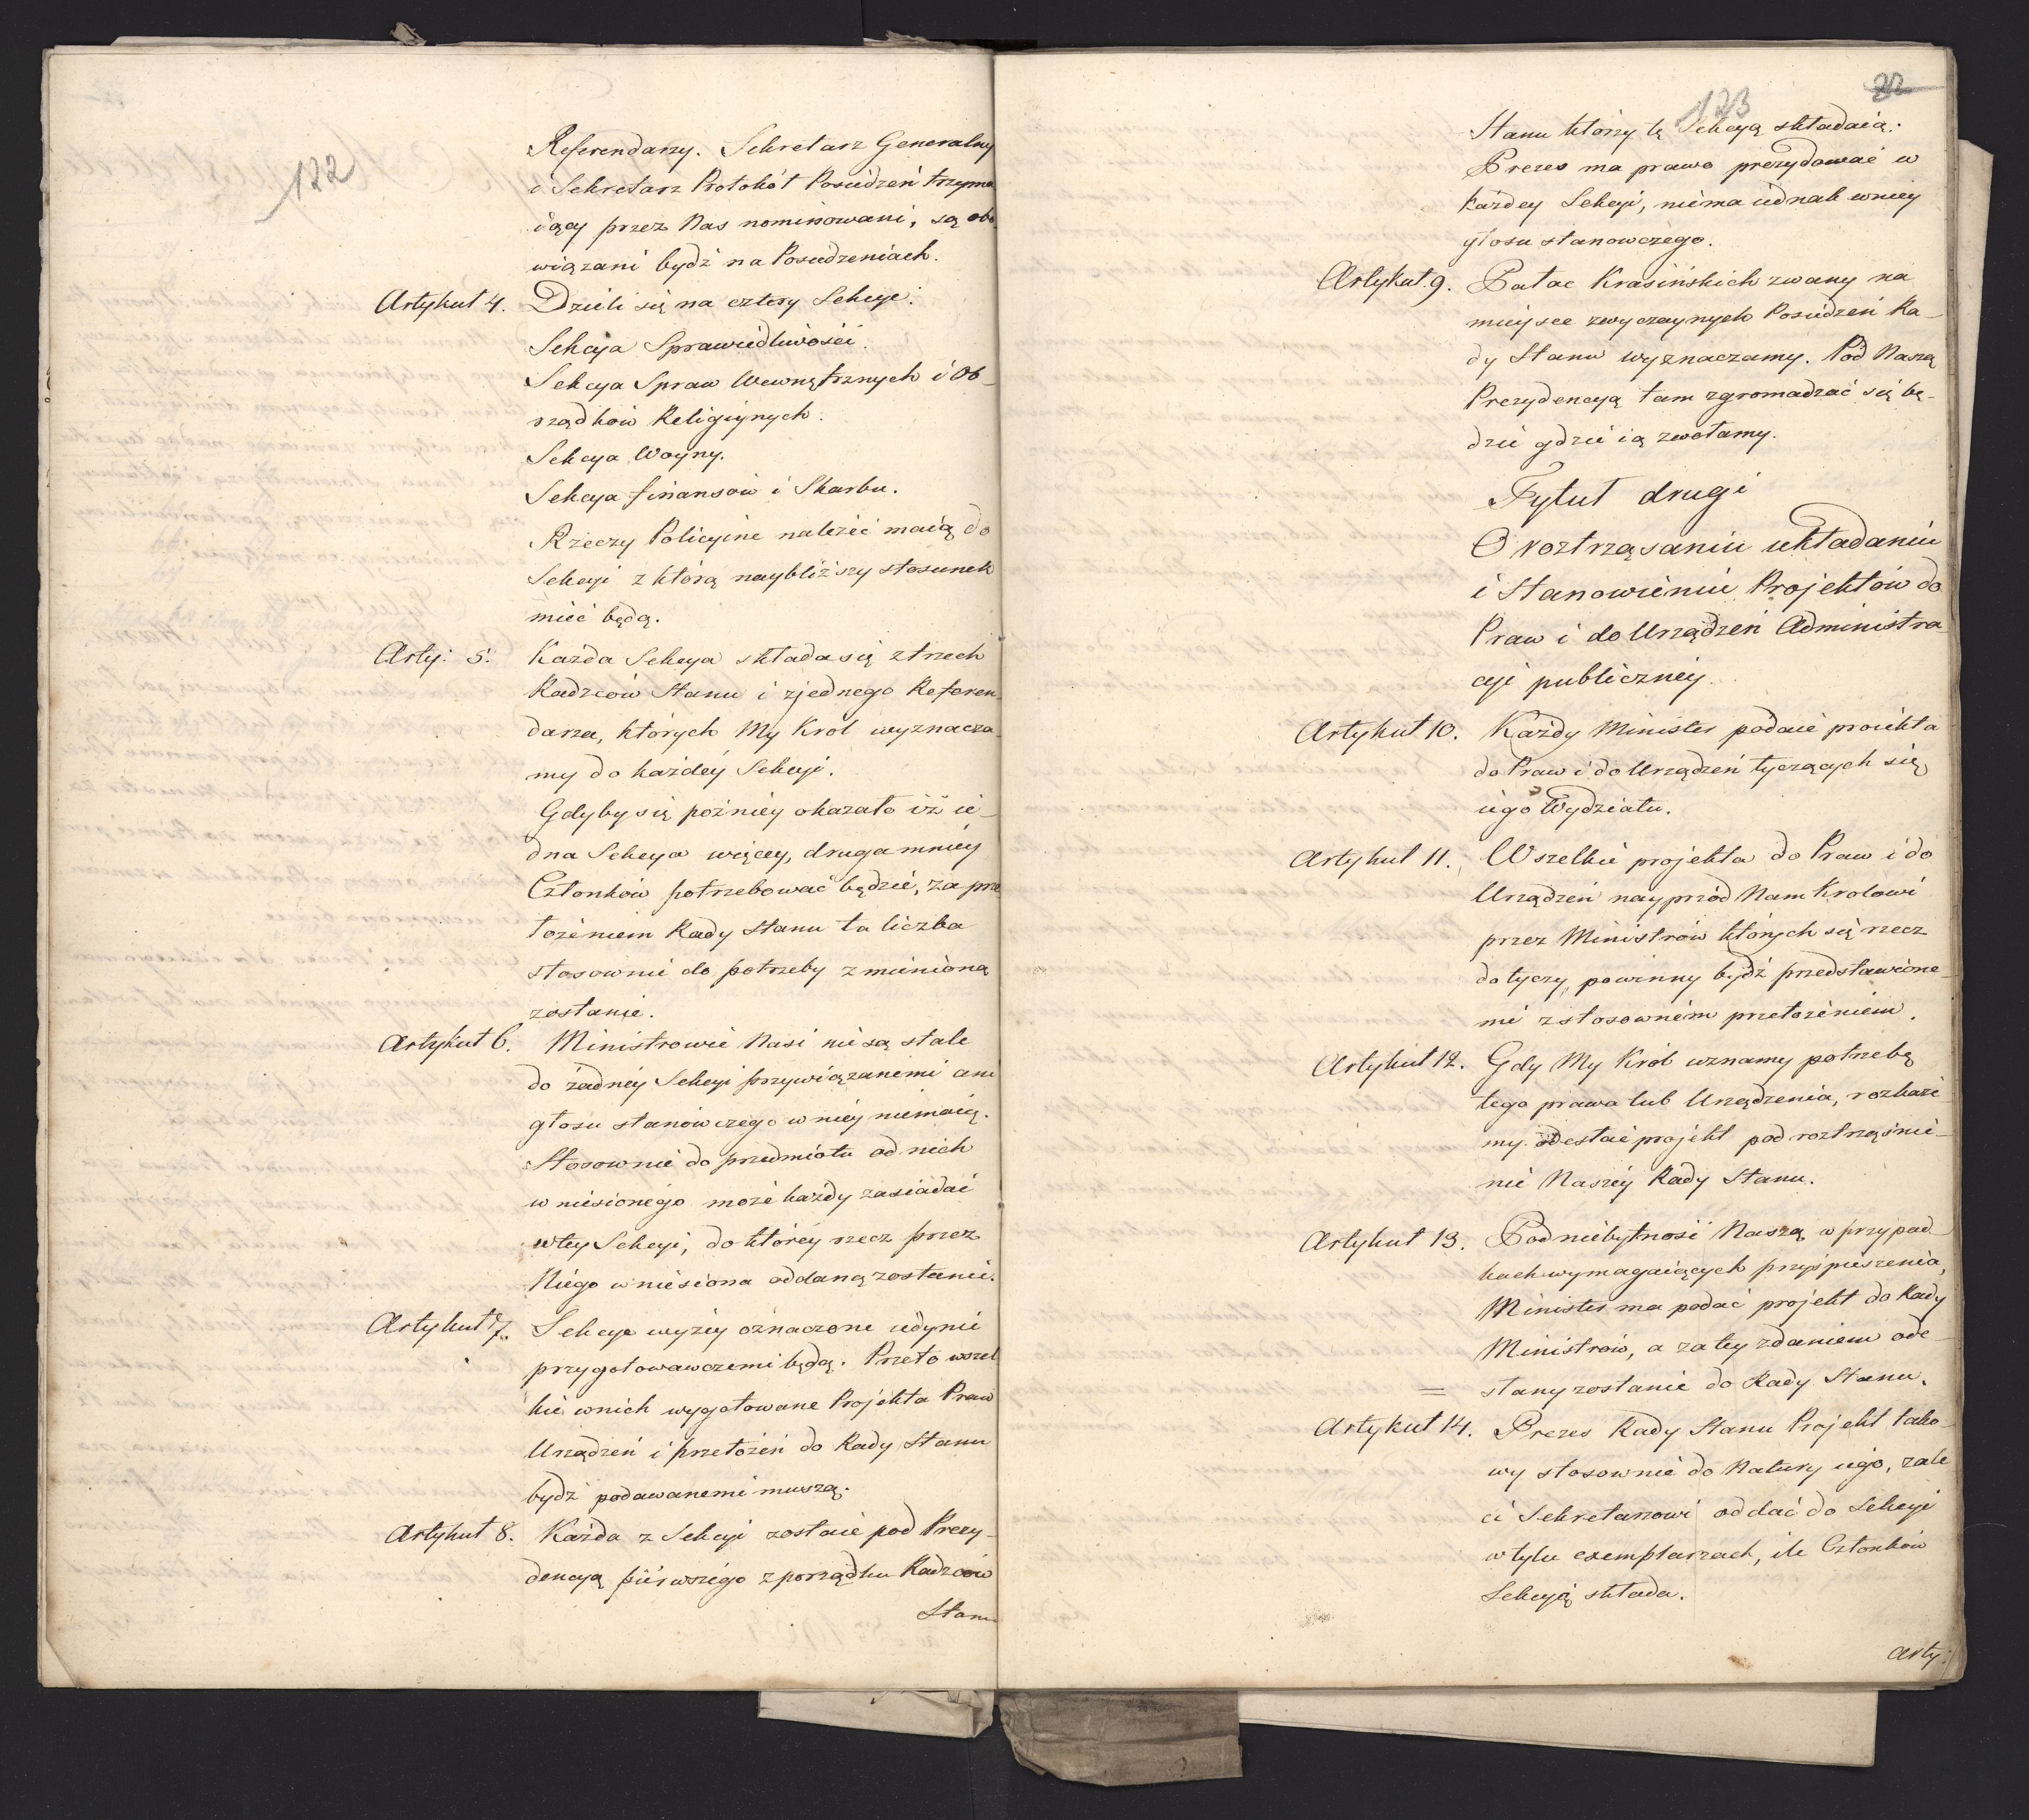 122
Referendarzy. Sekretarz Generalny
i Sekretarz Protokół Posiedzeń trzyma
iący przez Nas nominowani, są obo
wiązani bydź na Posiedzeniach.
Artykuł 4. Dzieli się na cztery Sekcye:
Sekcya Sprawiedliwości.
Sekcya Spraw Wewnętrznych i Ob-
rządków Religiynych.
Sekcya Woyny.
Sekcya finansów i Skarbu.
Rzeczy Policyine należeć maią do
Sekcyi z którą naybliższy stosunek
mieć będą.
Arty: 5. Każda Sekcya składa się z trzech
Radzców Stanu i z jednego Referen
darza, których My Krol wyznacza-
my do każdey Sekcyi.
Gdyby się poźniey okazało iż ie-
dna Sekcya więcey, druga mniey
Członków potrzebować będzie, za prze
łożeniem Rady Stanu ta liczba
stosownie do potrzeby zmienioną
zostanie.
Artykuł 6. Ministrowie Nasi nie są stale
do żadney Sekcyi przywiązanemi ani
głosu stanowczego w niey niemaią.
Stosownie do przedmiotu od nich
wniesionego może każdy zasiadać
w tey Sekcyi, do którey rzecz przez
Niego wniesiona oddaną zostanie.
Artykuł 7. Sekcye wyżey oznaczone iedynie
przygotowawczemi będą. Przeto wszel
kie w nich wygotowane Projekta Praw
Urządzeń i przełożeń do Rady Stanu
bydź podawanemi muszą.
Artykuł 8. Każda z Sekcyi zostaie pod Prezy-
dencyą pierwszego z porządku Radzców
Stanu
123
22
Stanu którzy tę Sekcyą składaią.
Prezes ma prawo prezydować w
każdey Sekcyi, niema iednak w niey
głosu stanowczego.
Artykuł 9. Pałac Krasińskich zwany na
mieysce zwyczaynych Posiedzeń Ra-
dy Stanu wyznaczamy. Pod Naszą
Prezydencyą tam zgromadzać się bę-
dzie gdzie ią zwołamy.
Tytuł drugi
O roztrząsaniu układaniu
i Stanowieniu Projektów do
Praw i do Urządzeń Administra
cyi publiczney.
Artykuł 10. Każdy Minister podaie proiekta
do Praw i do Urządzeń tyczących się
iego Wydziału.
Artykuł 11. Wszelkie projekta do Praw i do
Urządzeń nayprzód Nam Krolowi
przez Ministrów których się rzecz
dotyczy, powinny bydź przedstawione-
mi z stosownem przełożeniem.
Artykuł 12. Gdy My Król uznamy potrzebę
tego prawa lub Urządzenia, rozkaże-
my. odesłać projekt pod roztrząśnie-
nie Naszey Rady Stanu.
Artykuł 13. Pod niebytność Naszą w przypad-
kach wymagaiących przyśpieszenia,
Minister ma podać projekt do Rady
Ministrów, a za tey zdaniem ode-
= słany zostanie do Rady Stanu.
Artykuł 14. Prezes Rady Stanu Projekt tako-
wy stosownie do Natury iego, zale
ci Sekretarzowi oddać do Sekcyi
w tylu exemplarzach, ile Członków
Sekcyią składa.
Arty: